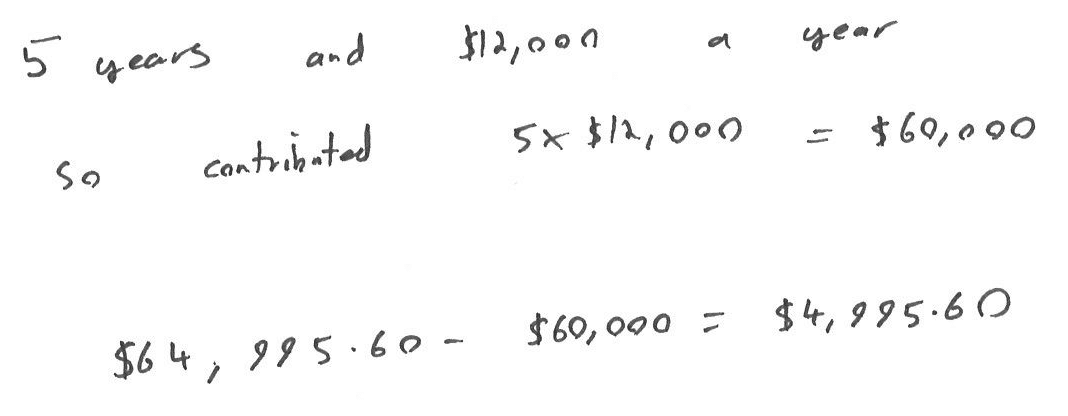 5 years and $12,000 a year
so contributed 5x $12,000 = $60,000
$64,995.60 - $60,000 = $4,995.60